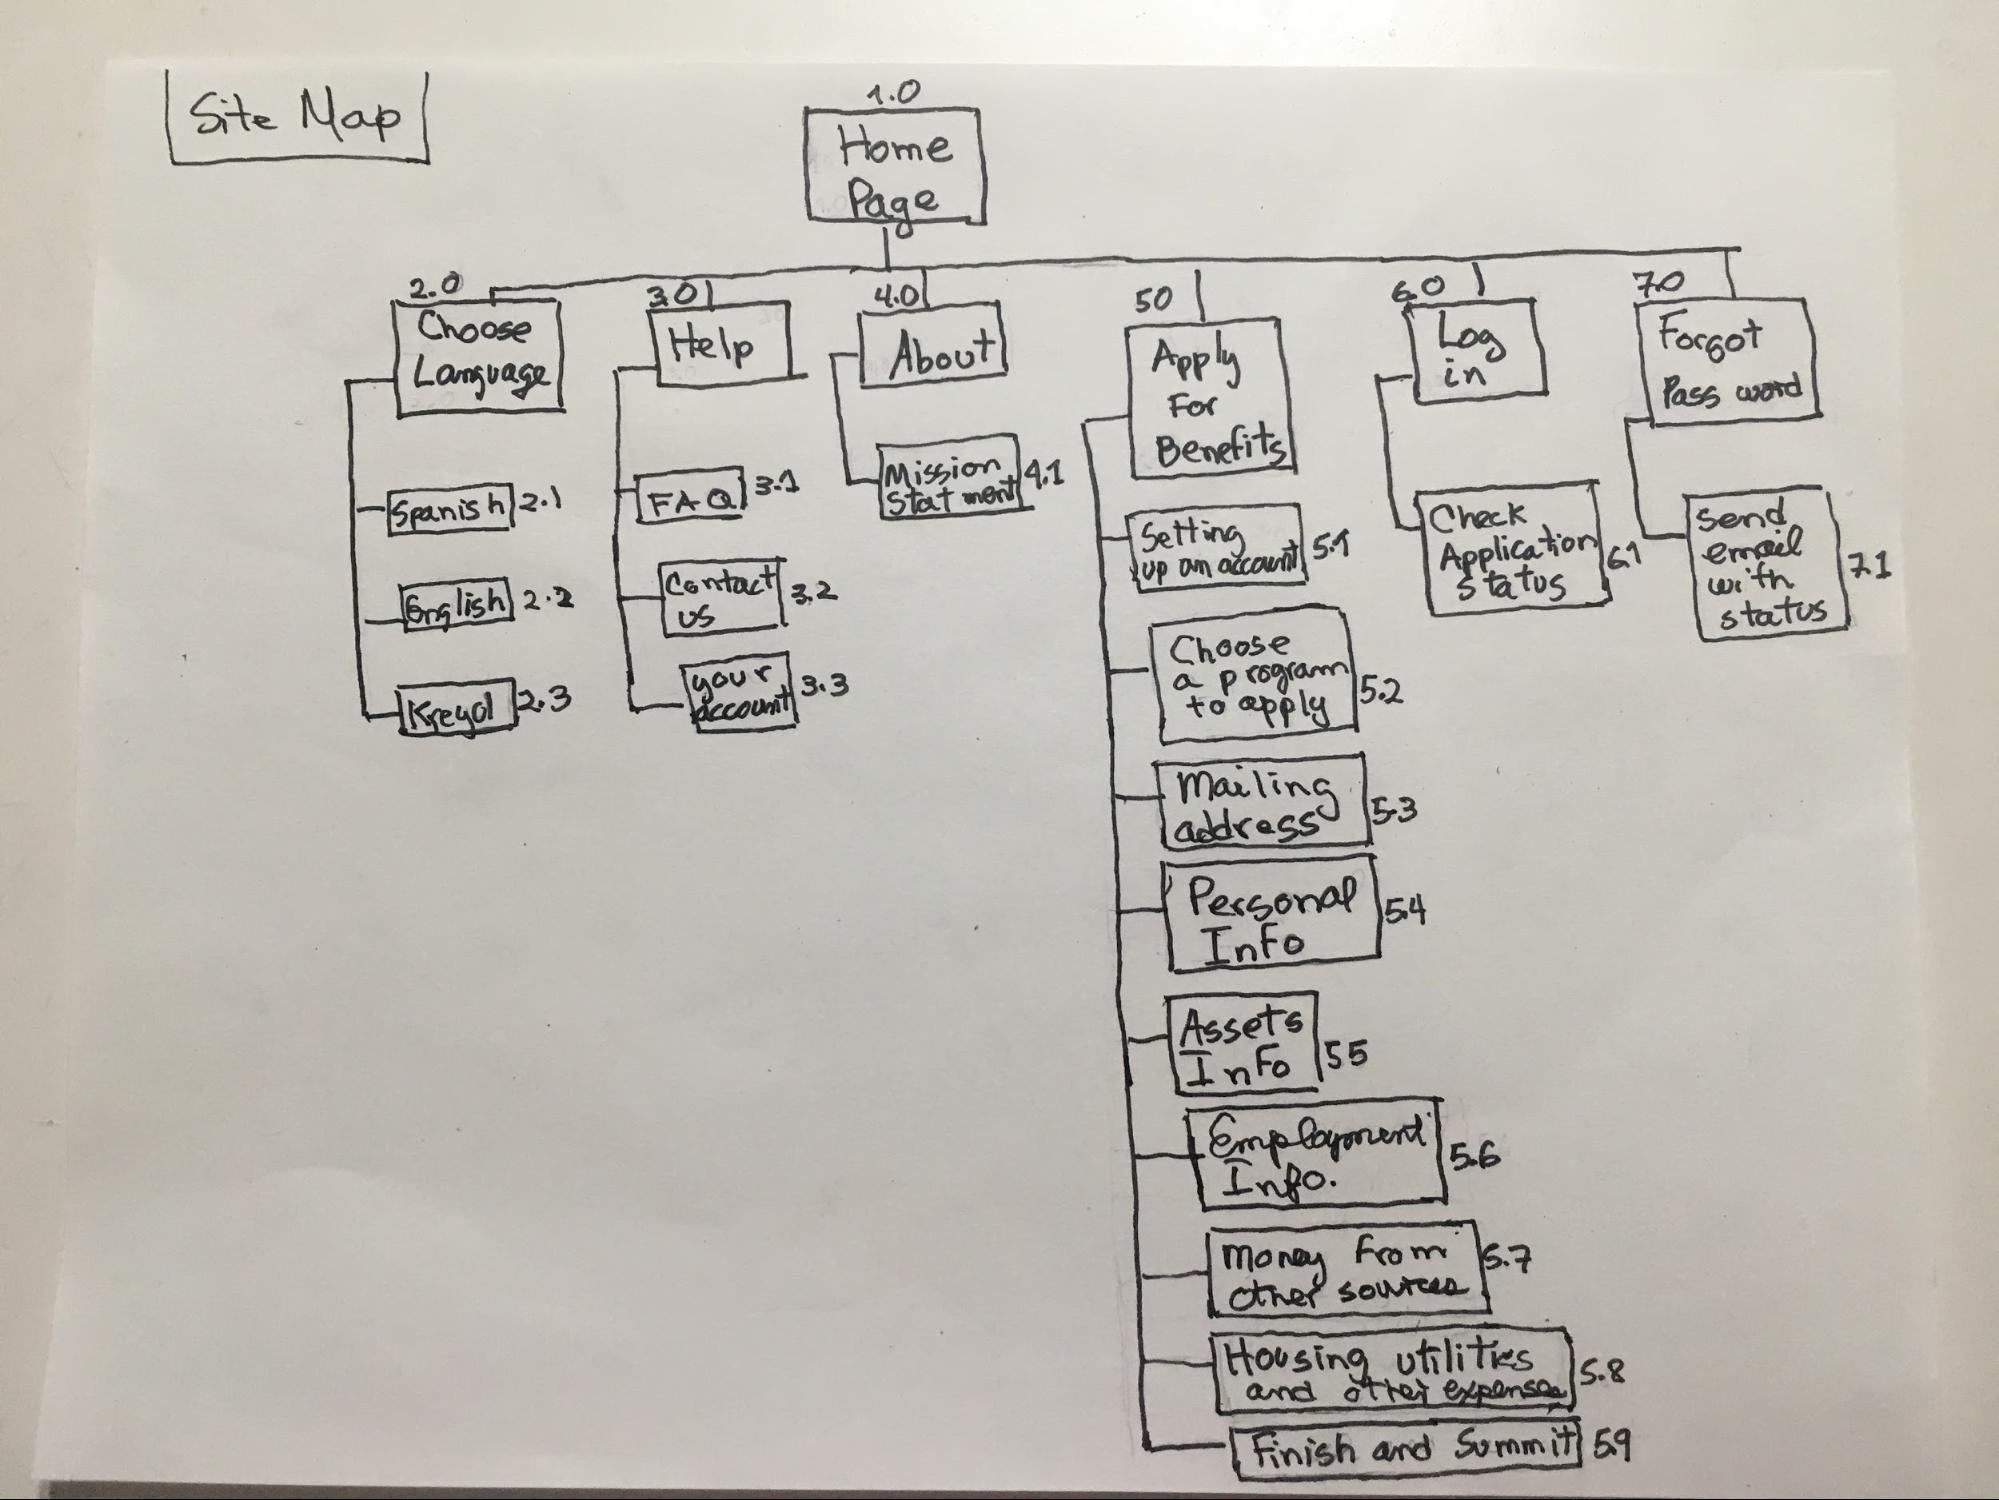 Site Map
1.0
Home
Page
2.0
Choose
Language
Spanish 2.1
English 2.2
Kreyol 2.3
3.0
Help
FAQ 3.1
Contact
us 3.2
your
account 3.3
4.0
About
Mission
Statment 4.1
50
Apply
For
Benefits
Setting
up an account 5.1
Choose
a program
to apply 5.2
Mailing
address 5.3
Personal
Info 5.4
Assets
Info 55
Employment
Info. 5.6
Money From
other sources 5.7
Housing utilities
and other expenses 5.8
Finish and Summit 5.9
6.0
Log
in
Check
Application
status 6.1
7.0
Forgot
Pass word
Send
email
with
status 7.1